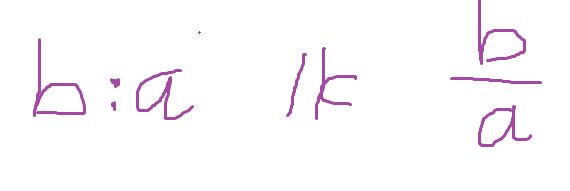 b:a /k b/a